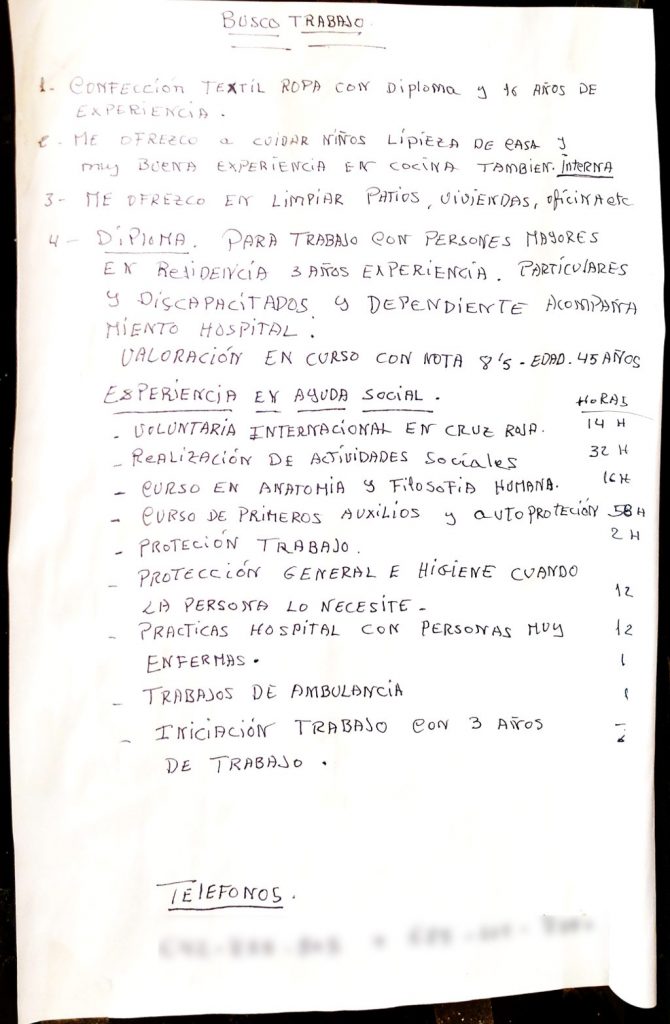 BUSCO TRABAJO.
1- CONFECCIÓN TEXTIL ROPA CON DiPloma y 16 AÑOS DE
EXPERIENCIA.
2- ME OFREZCO a CUIDAR NIÑOS LIPIEZA DE CASA y
muy BUENA EXPERIENCIA EN COCINA TAMBIEN. INTERNA
3- ME OFREZCO EN LIMPIAR PATIOS, VIVIENDAS, oficina etc
4- DIPLOMA. PARA TRABAJO CON PERSONES MAYORES
EN ReSIDENCIA 3 AÑOS EXPERIENCIA. PARTICULARES
Y DISCAPACITADOS Y DEPENDIENTE ACOMPAÑA
MIENTO HOSPITAL.
VALORACIÓN EN CURSO CON NOTA 8'5 - EDAD. 45 AÑOS
EXPERIENCIA EN AYUDA SOCIAL. HORAS
- VOLUNTARIA INTERNACIONAL EN CRUZ ROJA. 14 H
- ReALIZACIÓN DE ACTIVIDADES SOCIALES 32 H
- CURSO EN ANATOMIA Y FILOSOFIA HUMANA. 16 H
- CURSO DE PRIMEROS AUXILIOS y AUTOPROTECIÓN 58 H
- PROTECIÓN TRABAJO. 2 H
- PROTECCIÓN GENERAL E HIGIENE CUANDO
LA PERSONA LO NECESITE - 12
- PRACTICAS HOSPITAL CON PERSONAS MUY 12
ENFERMAS.
- TRABAJOS DE AMBULANCIA
- INICIACIÓN TRABAJO CON 3 AÑOS
DE TRABAJO.
TELEFONOS.